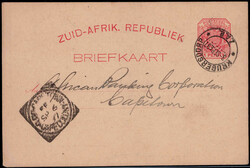 ZUID-AFRIK. REPUBLIEK
BRIEFKAART
KRUGERSDORP
African Banking Corporation
Capetown